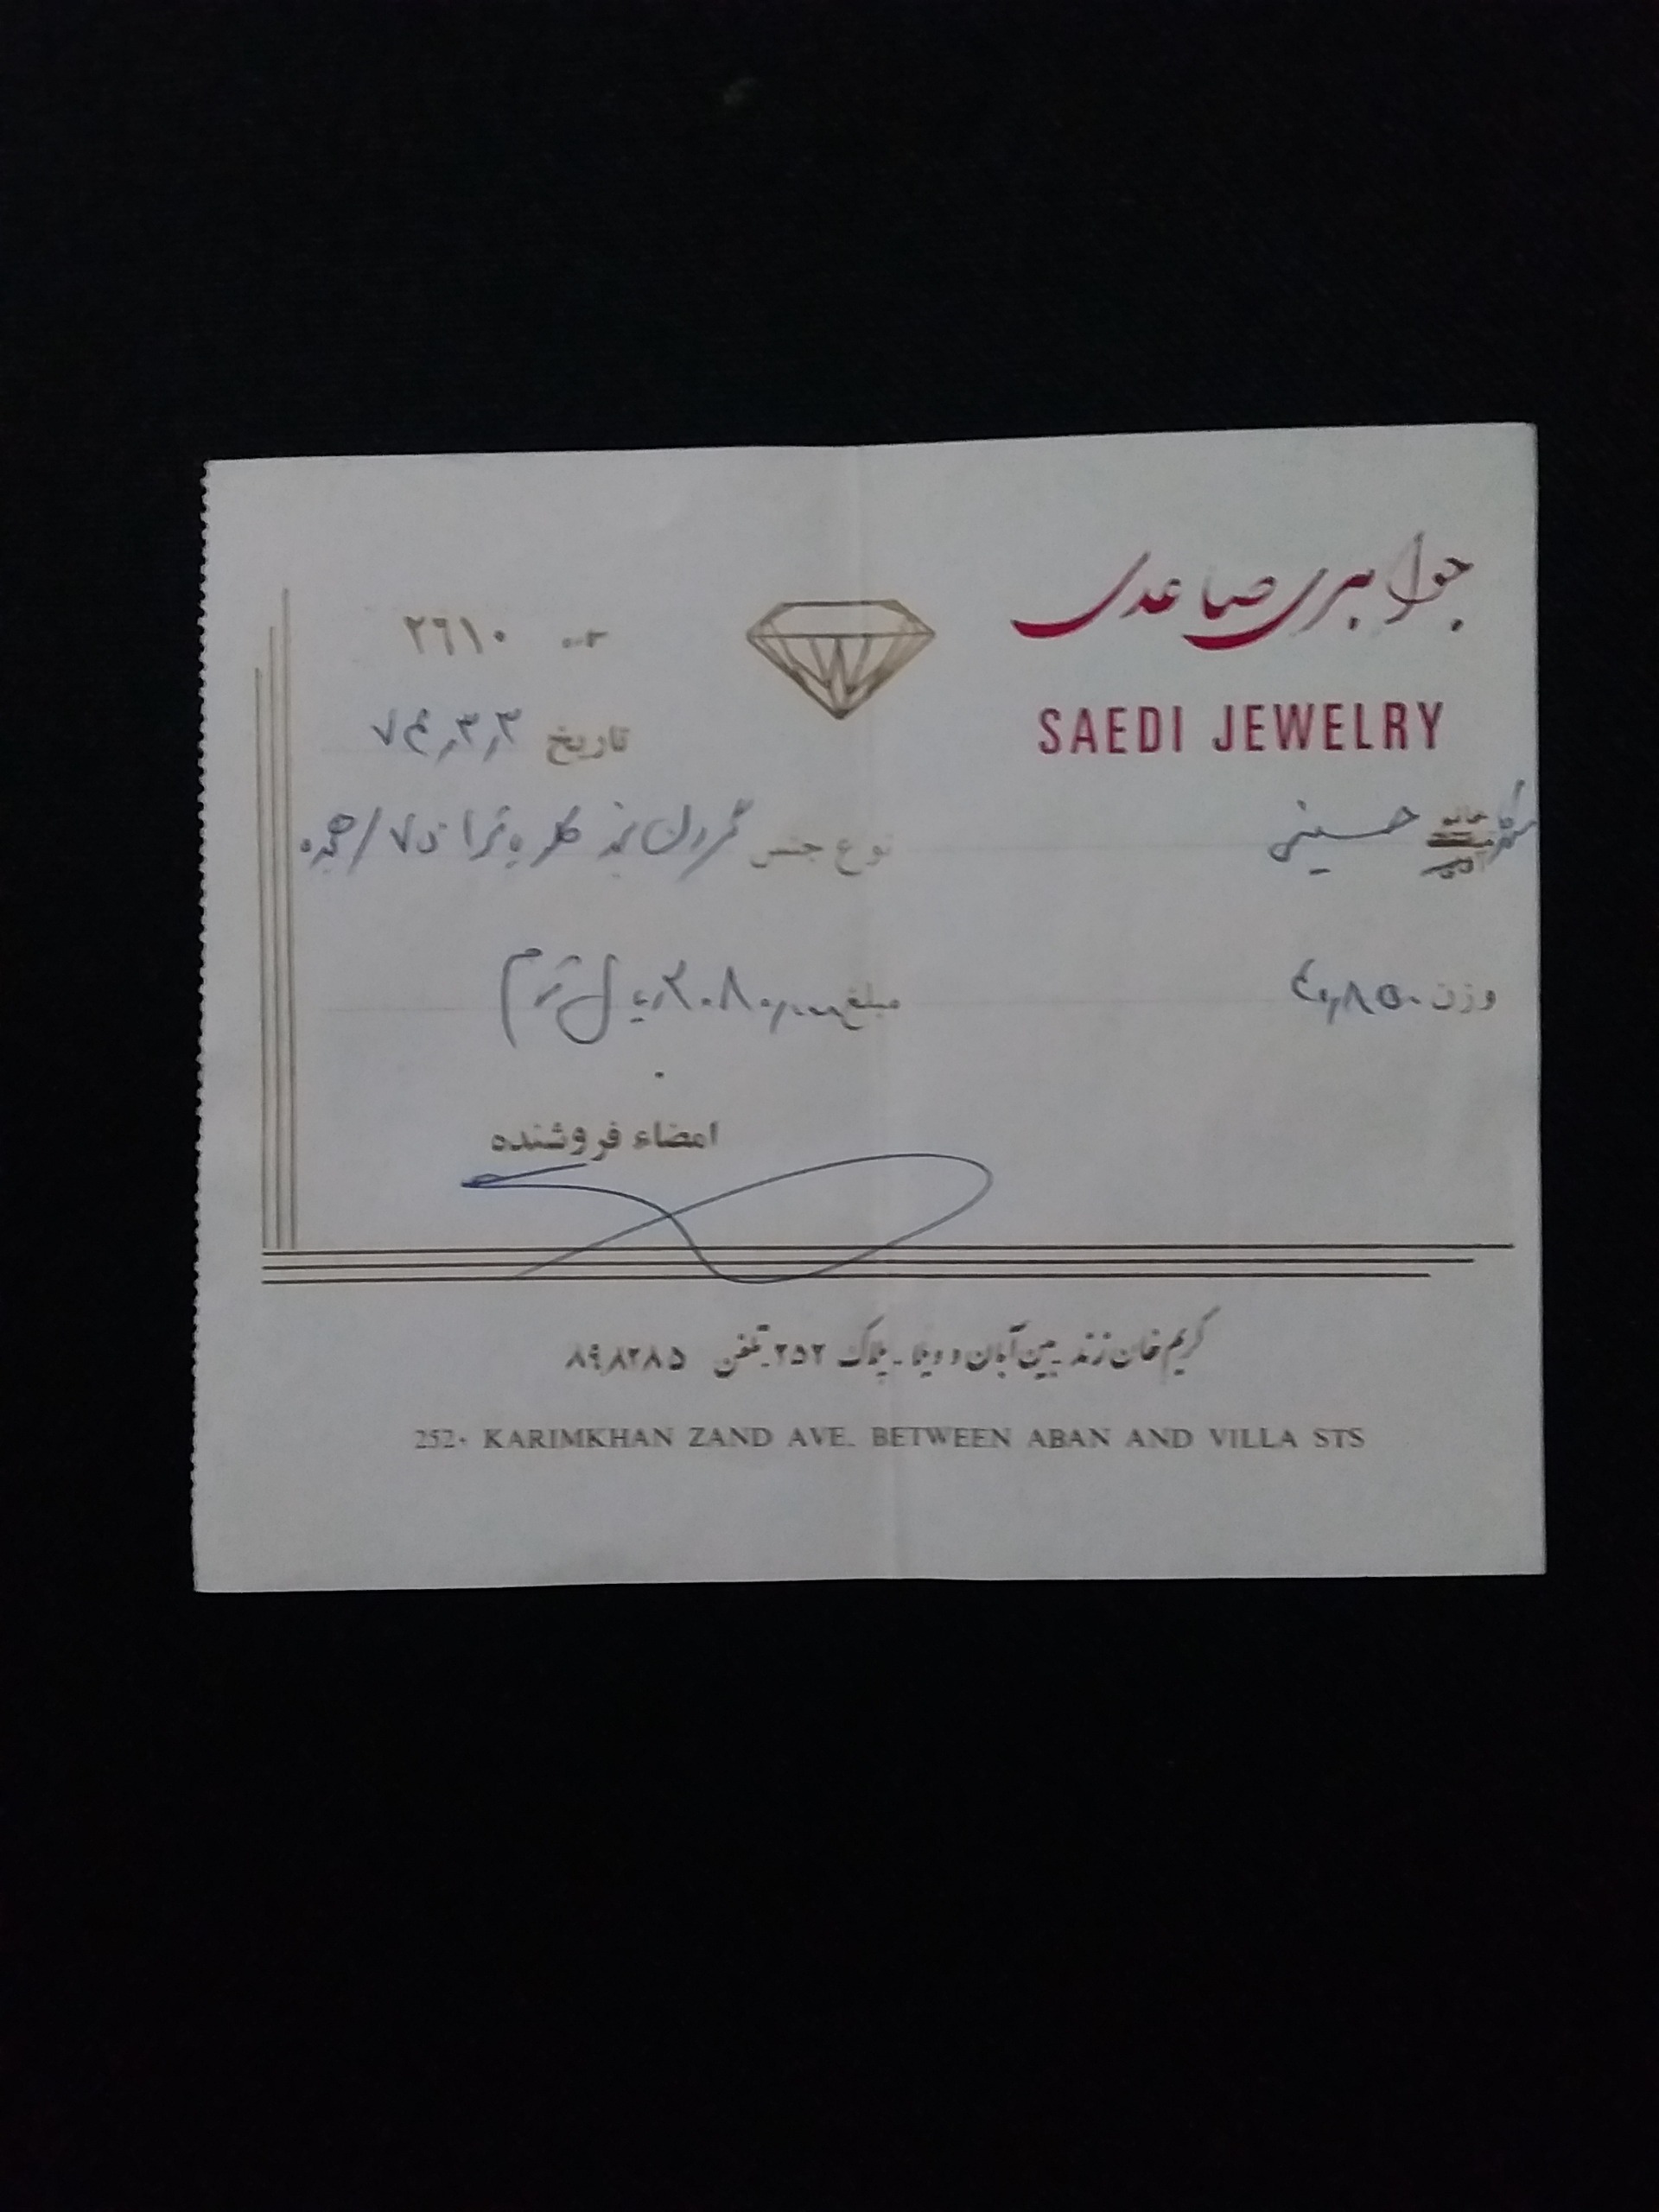 جواهری صاعدی
SAEDI JEWELRY
۲۶۱۰
تاریخ ۷۴٫۳٫۳
خانم حسینی
نوع جنس گردن بند
وزن ۴٫۸۵۰
مبلغ ریال
امضاء فروشنده
کریم خان زند ـ بین آبان و ویلا ـ پلاک ۲۵۲ ـ تلفن ۸۹۸۲۸۵
252. KARIMKHAN ZAND AVE. BETWEEN ABAN AND VILLA STS